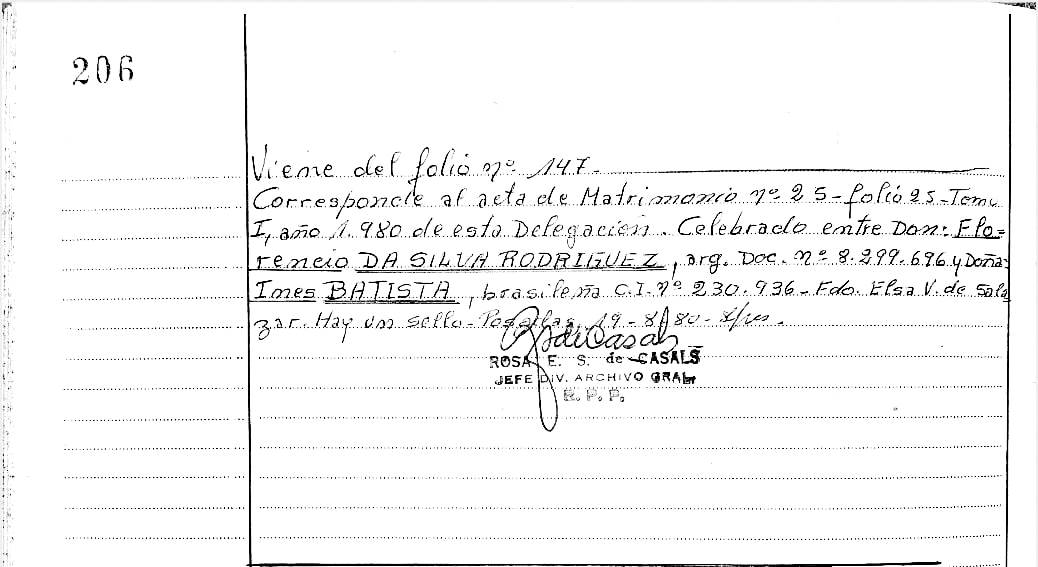 206
Viene del folio nº 147.-
Corresponde al acta de Matrimonio nº 25 - folio 25 - Tomo
I, año 1.980 de esta Delegación. Celebrado entre Don: Flo=
rencio DA SILVA RODRIGUEZ, arg. Doc. nº 8.299.696 y Doña:
Ines BATISTA, brasileña C.I. nº 230.936 - Fdo. Elsa V. de Sala
zar. Hay un sello - Posadas, 19-8/80-
ROSA E. S. de CASALS
JEFE DIV. ARCHIVO GRAL.
R. P. P.